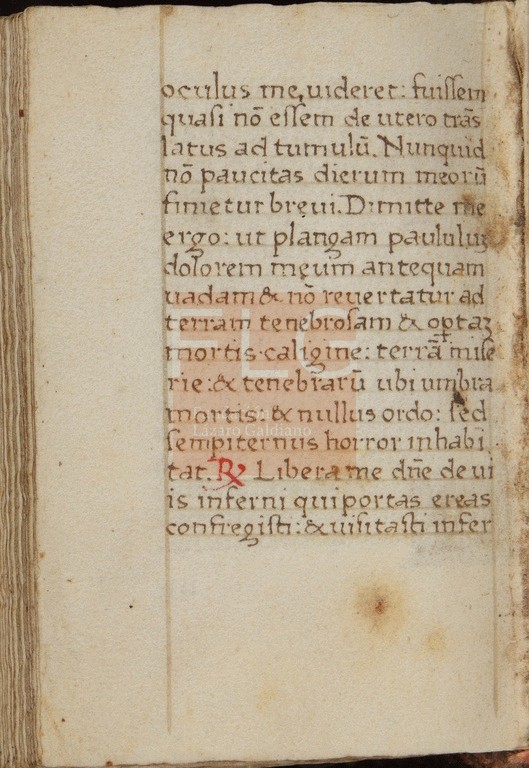 oculus me videret: fuissem
quasi nō essem de utero trās
latus ad tumulū. Nunquid
nō paucitas dierum meorū
finietur brevi. Dimitte me
ergo: ut plangam paululuʒ
dolorem meum antequam
vadam & nō revertatur ad
terram tenebrosam & optaʒ
mortis caligine: terrā mise
rie: & tenebrarū ubi umbra
mortis: & nullus ordo: sed
sempiternus horror inhabi
tat. ℟ Libera me dn̄e de vi
is inferni qui portas ereas
confregisti: & visitasti infer
FLG
Lázaro Galdiano